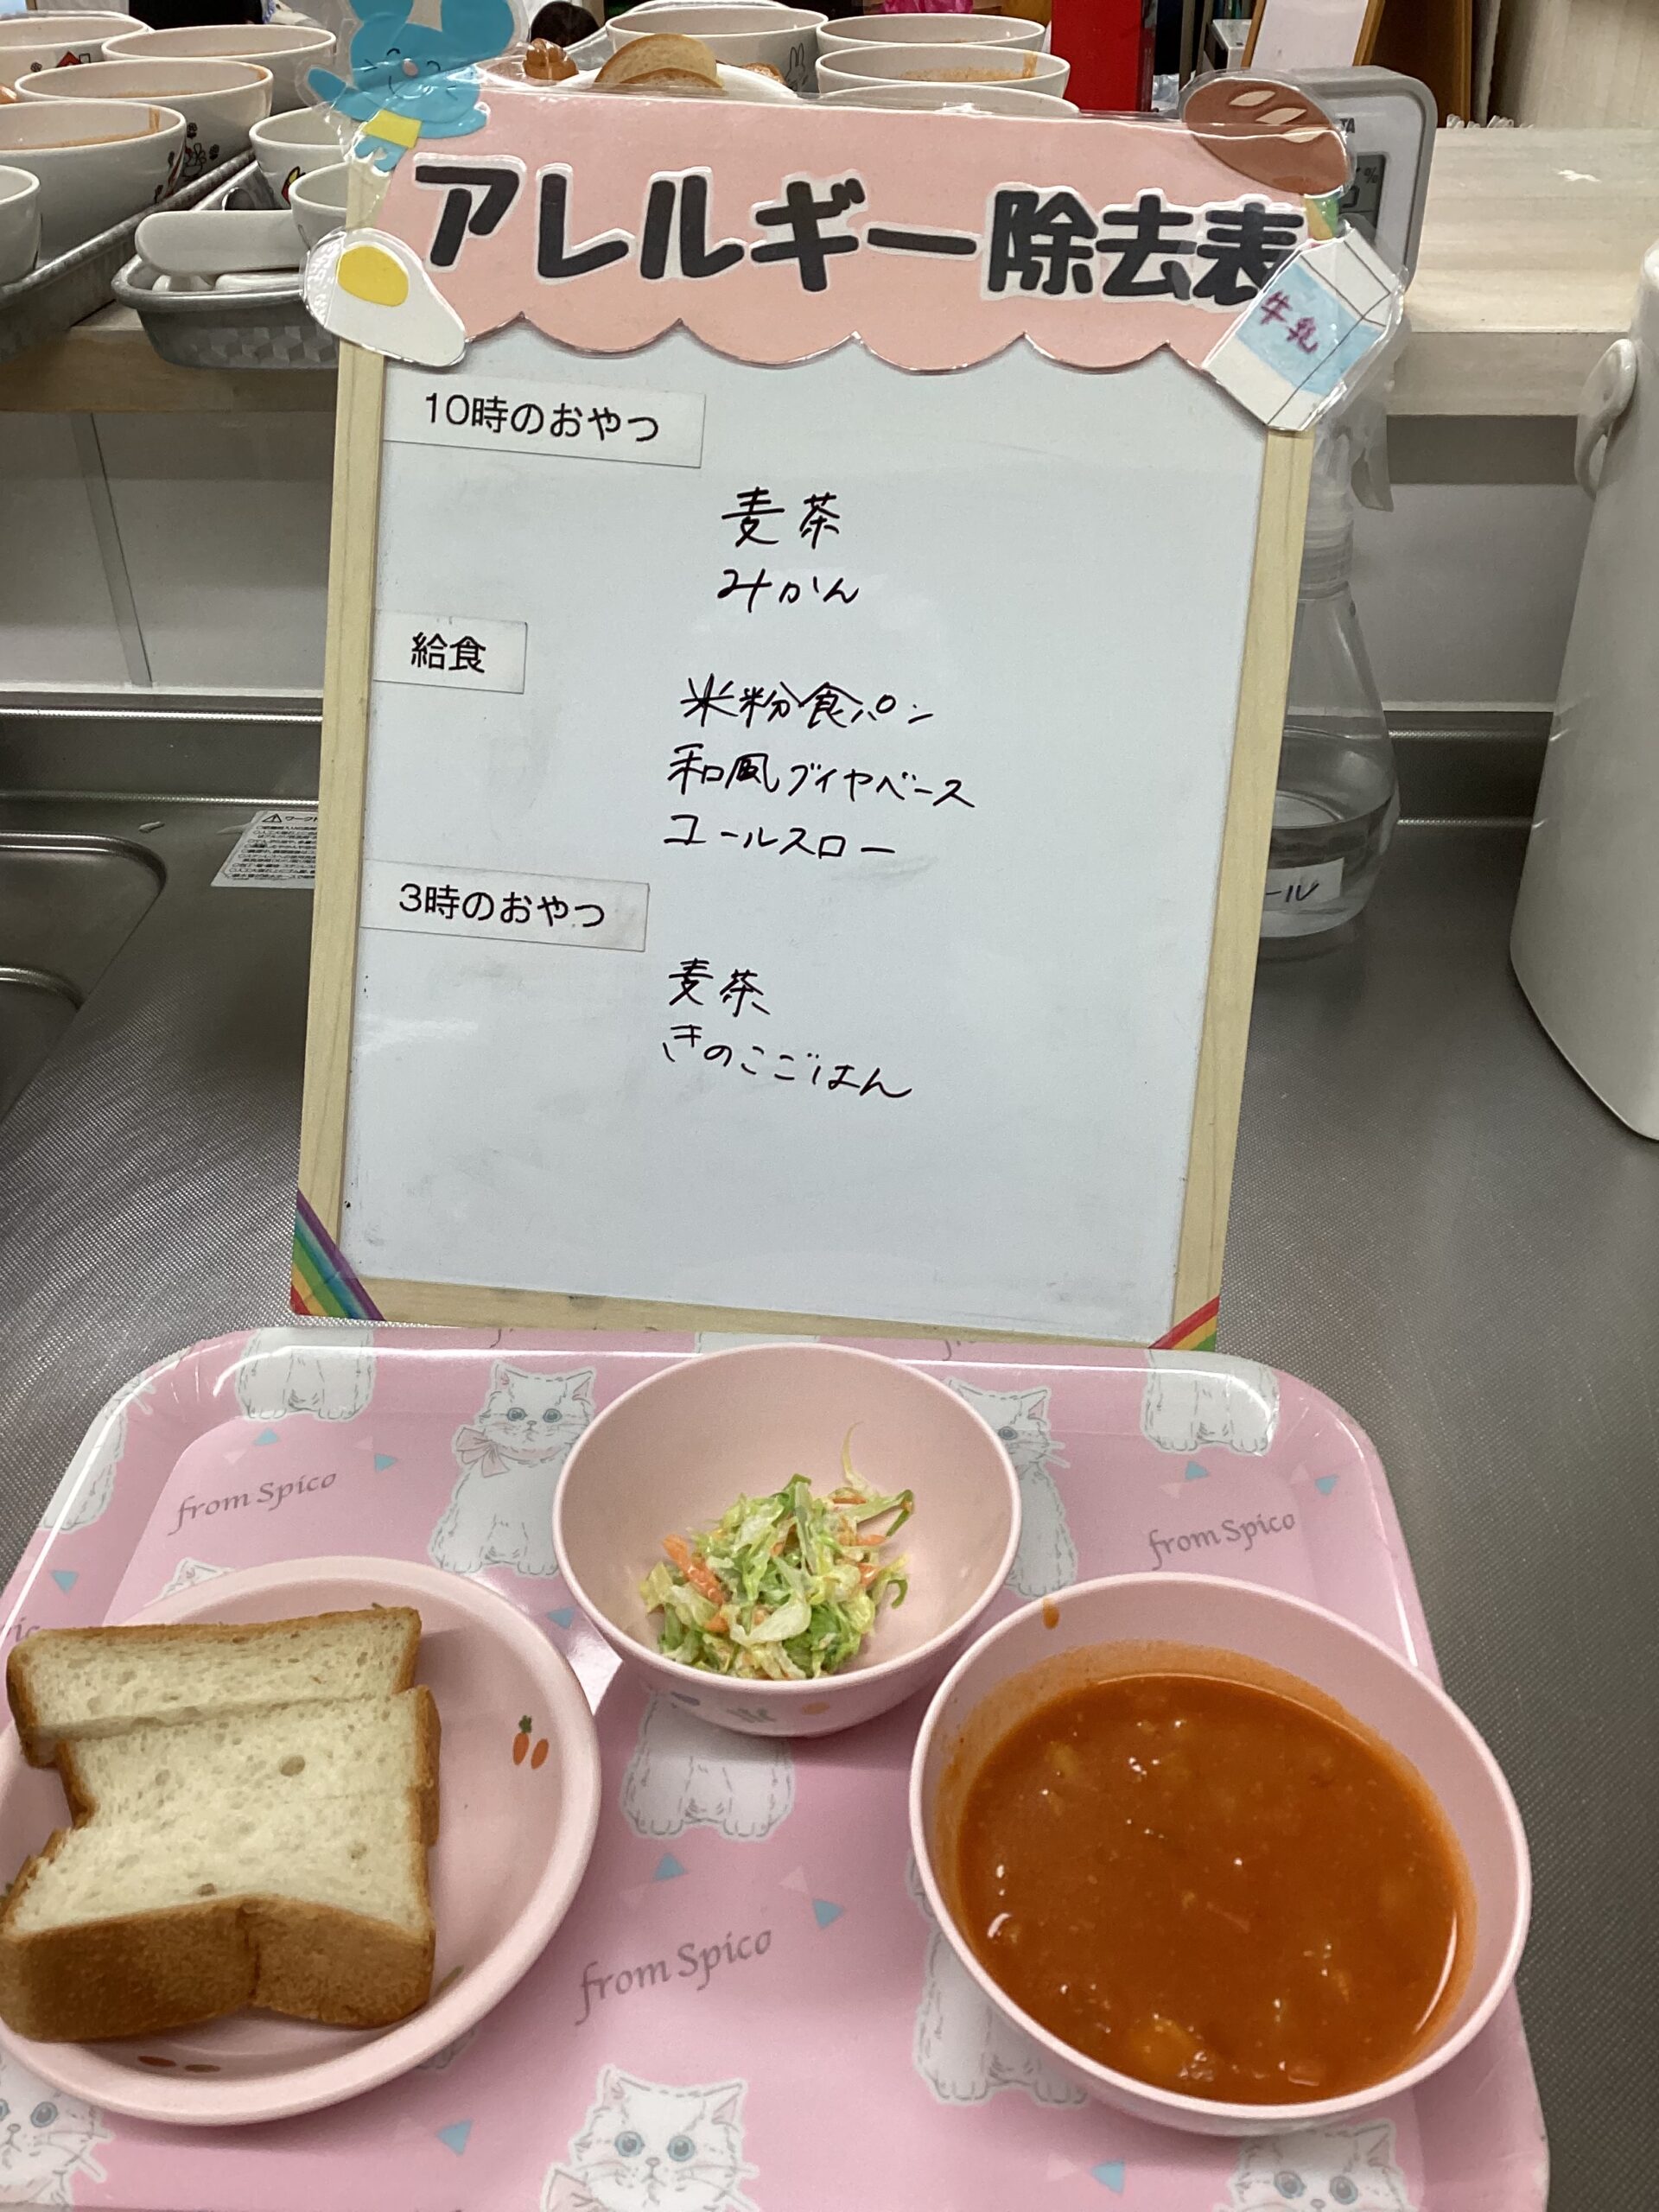 アレルギー除去表
牛乳
10時のおやつ
麦茶
みかん
給食
米粉食パン
和風ブイヤベース
コールスロー
3時のおやつ
麦茶
きのこごはん
ール
from Spico
from Spico
from Spico